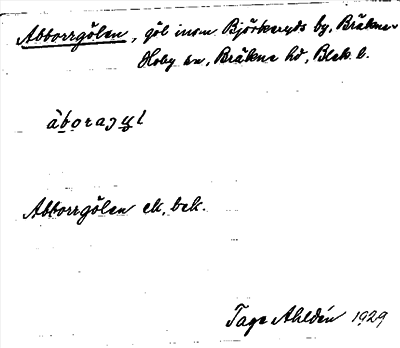 Abborrgölen, göl inom Björkeryds by, Bräkne-
Hoby sn, Bräkne hd, Blek. l.
Abborrgölen ek. bek.
Tage Ahldén 1929